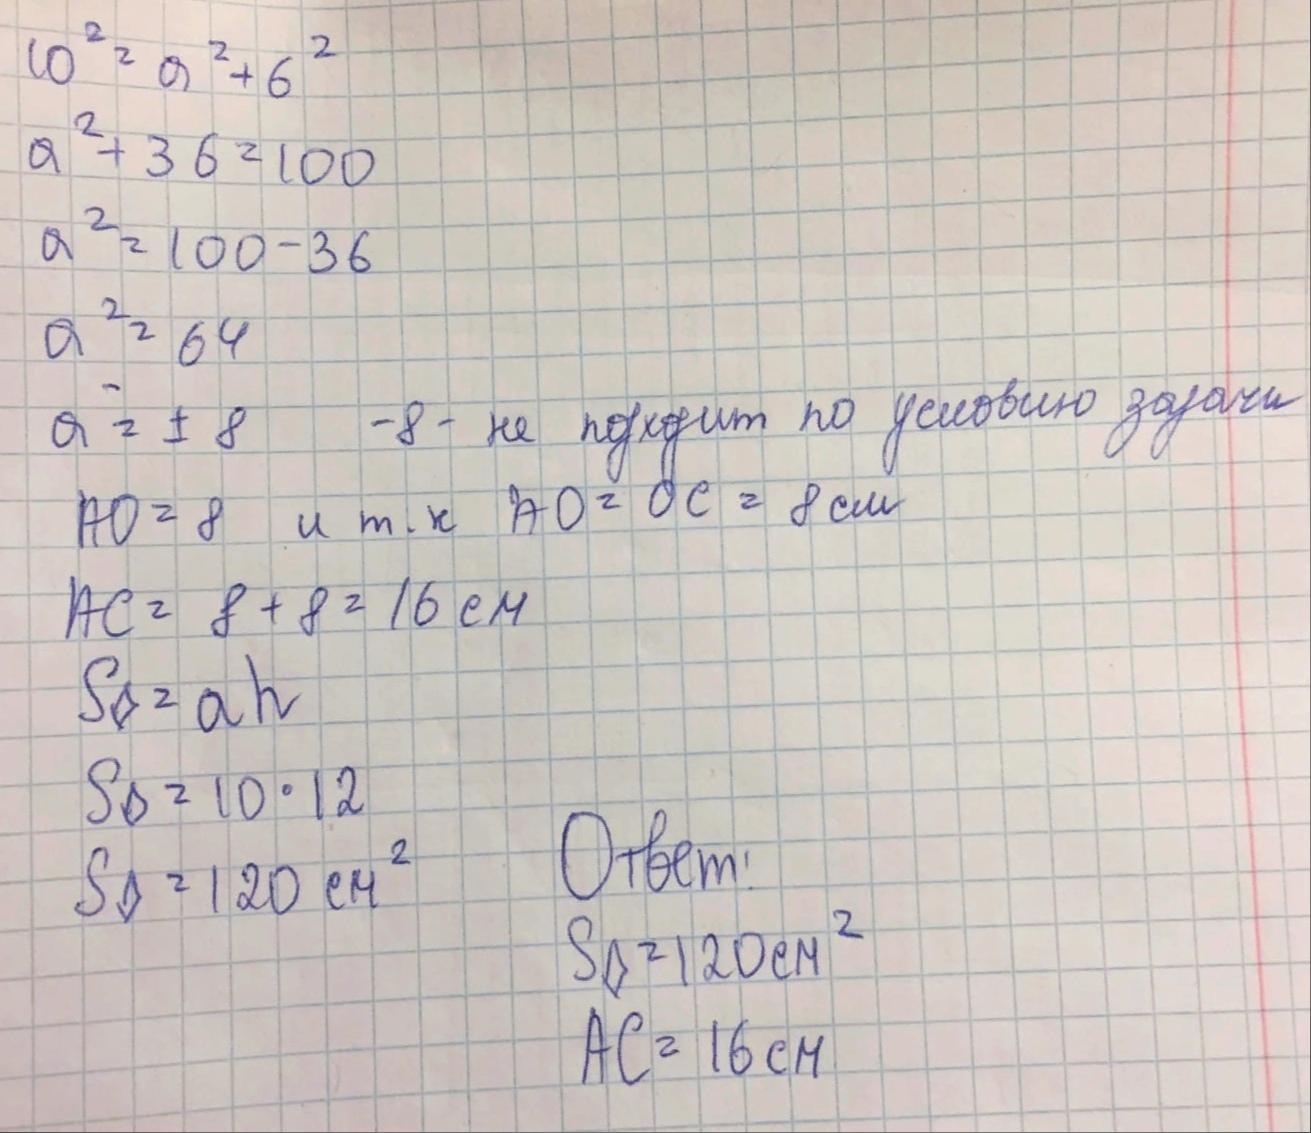 10² = a² + 6²
a² + 36 = 100
a² = 100 - 36
a² = 64
a = ± 8 -8 - не подходит по условию задачи
AO = 8 и т.к AO = OC = 8 см
AC = 8 + 8 = 16 см
S◊ = ah
S◊ = 10 · 12
S◊ = 120 см²
Ответ:
S◊ = 120 см²
AC = 16 см